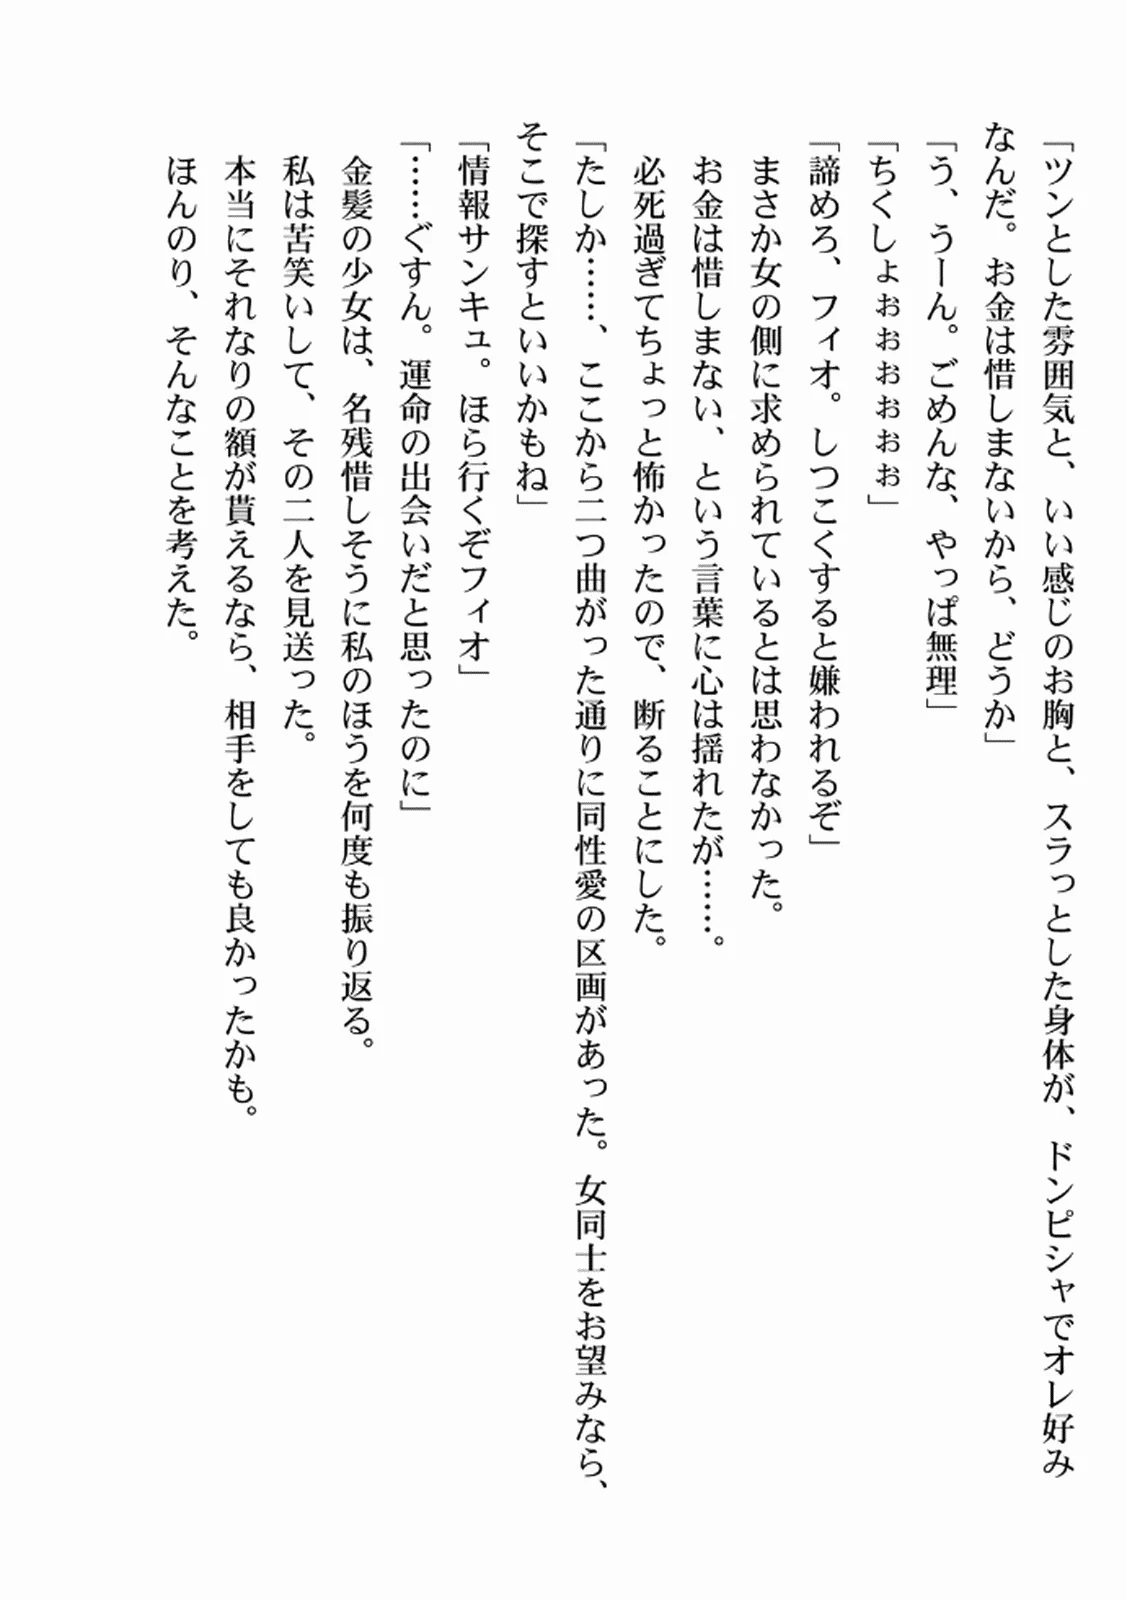 「ツンとした雰囲気と、いい感じのお胸と、スラっとした身体が、ドンピシャでオレ好み
なんだ。お金は惜しまないから、どうか」
「う、うーん。ごめんな、やっぱ無理」
「ちくしょぉぉぉぉぉぉ」
「諦めろ、フィオ。しつこくすると嫌われるぞ」
　まさか女の側に求められているとは思わなかった。
　お金は惜しまない、という言葉に心は揺れたが……。
　必死過ぎてちょっと怖かったので、断ることにした。
「たしか……、ここから二つ曲がった通りに同性愛の区画があった。女同士をお望みなら、
そこで探すといいかもね」
「情報サンキュ。ほら行くぞフィオ」
「……ぐすん。運命の出会いだと思ったのに」
　金髪の少女は、名残惜しそうに私のほうを何度も振り返る。
　私は苦笑いして、その二人を見送った。
　本当にそれなりの額が貰えるなら、相手をしても良かったかも。
　ほんのり、そんなことを考えた。